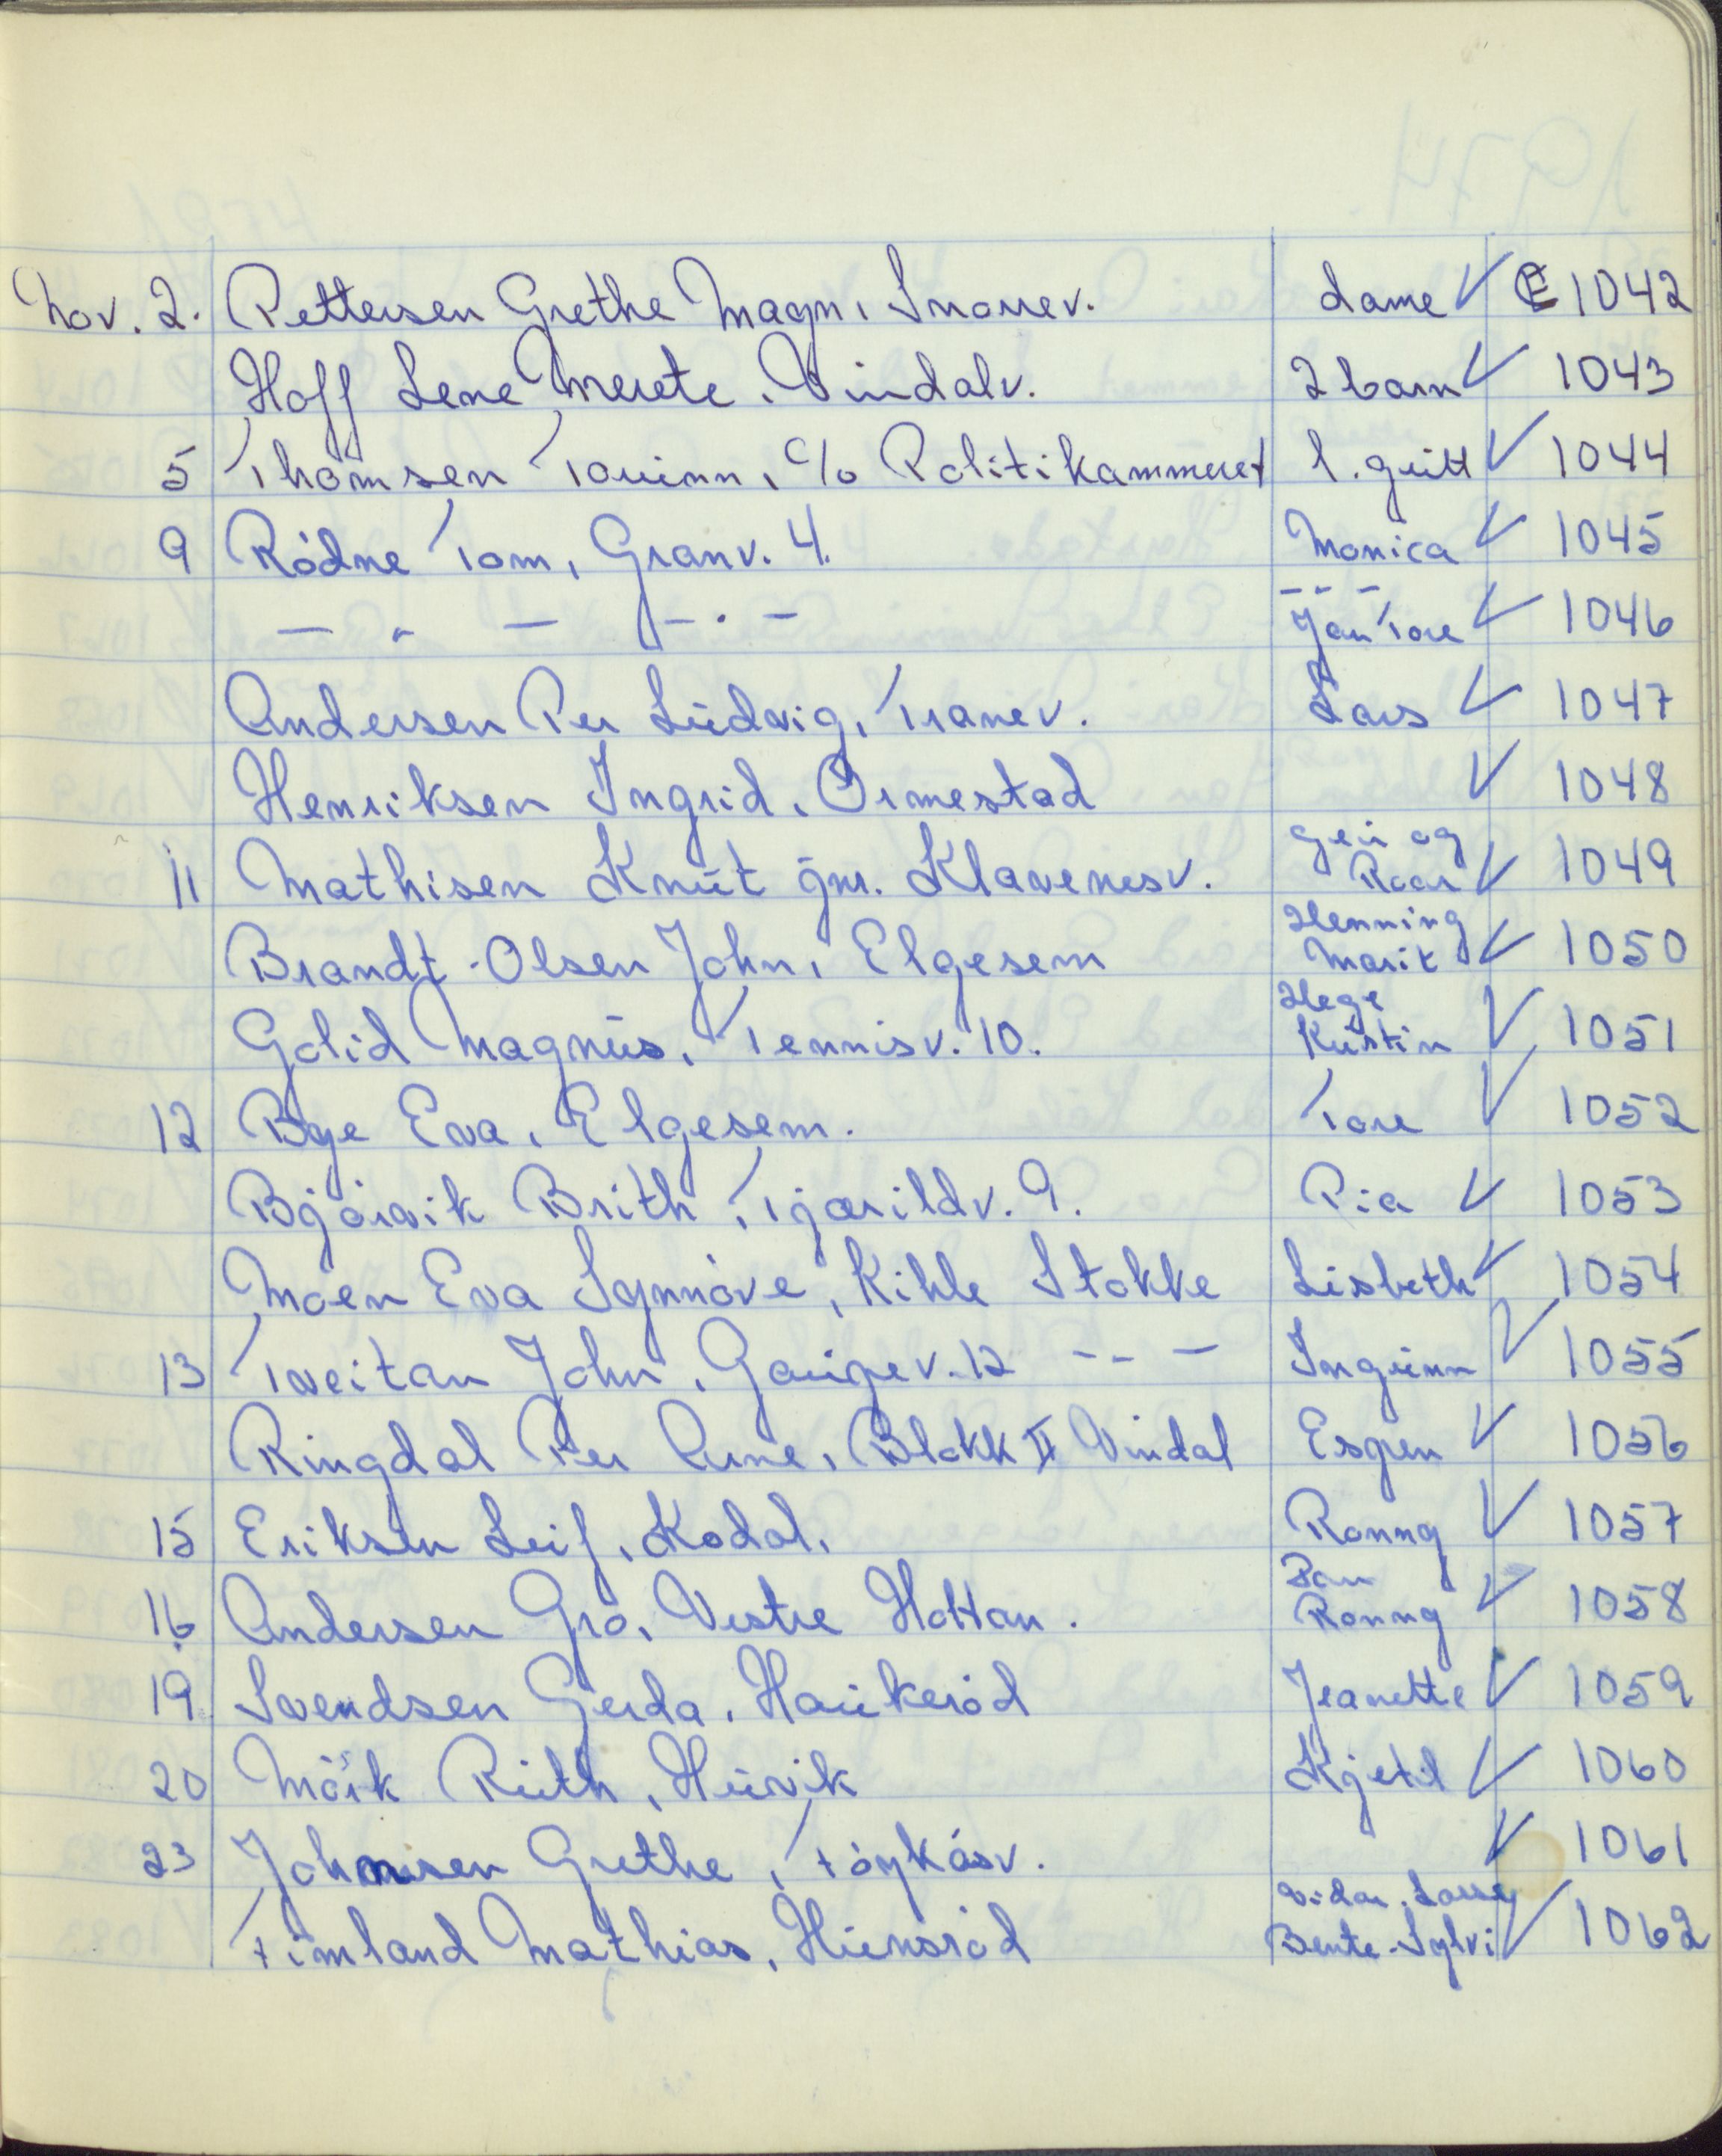 Nov. 2. Pettersen Grethe Magn, Snorrev. dame ✓ E 1042
Hoff Lene Merete, Vindalv. 2 barn ✓ 1043
5 Thomsen Torunn, c/o Politikammeret l. gutt ✓ 1044
9 Rødne Tom, Granv. 4. Monica ✓ 1045
— " — — . — - - - Jan Tore ✓ 1046
Andersen Per Ludvig, Tranev. Lars ✓ 1047
Henriksen Ingrid, Ormestad ✓ 1048
Geir og
11 Mathisen Knut jnr. Klavenesv. Roar ✓ 1049
Henning
Brandt-Olsen John, Elgesem Marit ✓ 1050
Hege
Golid Magnus, Tennisv. 10. Kirstin ✓ 1051
12 Bye Eva, Elgesem. Tore ✓ 1052
Bjørvik Brith, Tjærildv. 9. Pia ✓ 1053
Moen Eva Synnøve, Kihle Stokke Lisbeth ✓ 1054
13 Tveitan John, Gaupev. 12 - - — Ingunn ✓ 1055
Ringdal Per Arne, Blokk II Vindal Espen ✓ 1056
15 Eriksen Leif, Kodal. Ronny ✓ 1057
Jan
16 Andersen Gro, Vestre Hottan. Ronny ✓ 1058
19 Svendsen Gerda, Haukerød Jeanette ✓ 1059
20 Mørk Ruth, Huvik Kjetil ✓ 1060
23 Johansen Grethe, Føykåsv. ✓ 1061
Vidar, Lasse
Fimland Mathias, Hunsrød Bente-Sylvi ✓ 1062